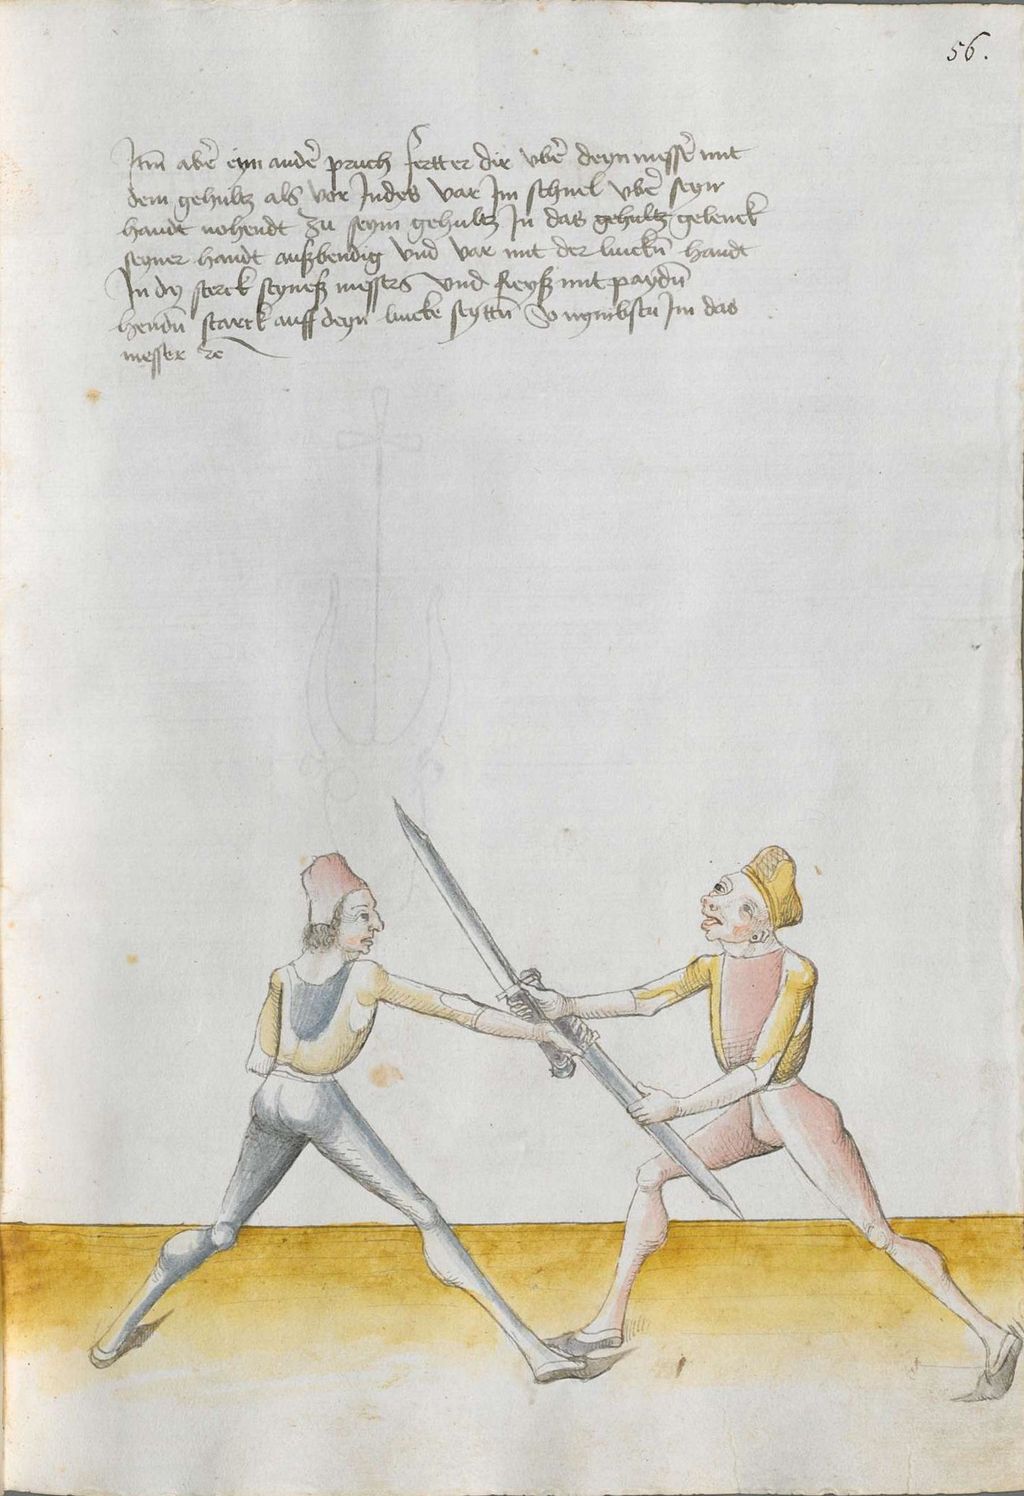 56.
Itm̄ abe᷑ eyn ande᷑ pruch fertt er dir vbe᷑ deyn messe᷑ mit
dem gehultz als vor Indes var Im schnel vbe᷑ seyn
handt nohendt zu seym gehultz In das gehultz gelenck
seyner handt außbendig vnd var mit der linckn̄ handt
In dy sterck seyneß messers vnd Reyß mit paydn̄
hendn̄ starck auff deyn lincke seyttn̄ So nymbstu Im das
messer ꝛc